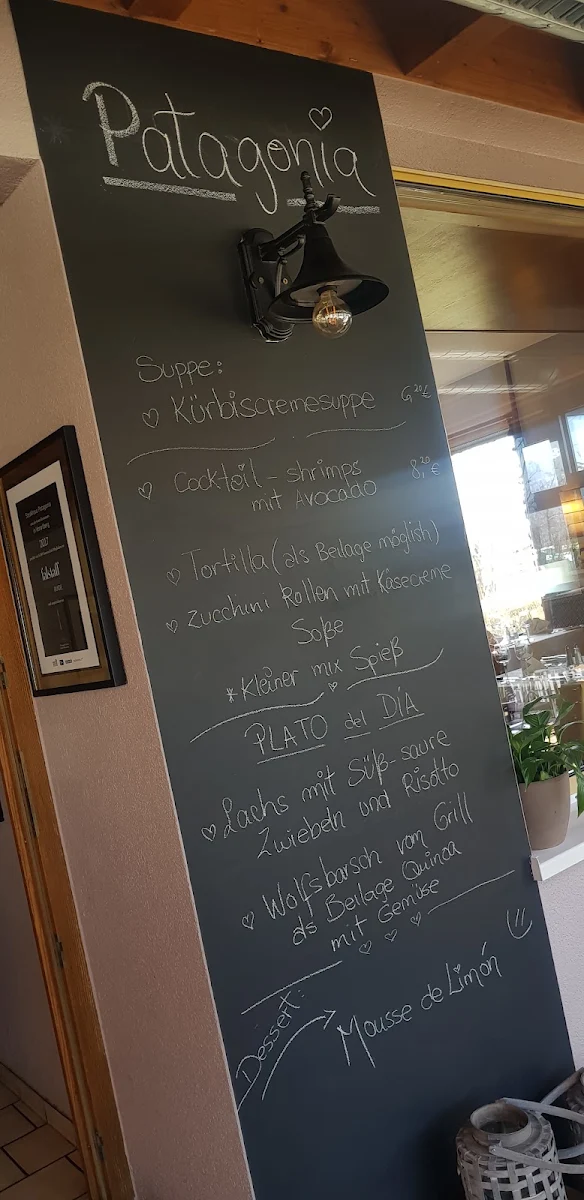 Patagonia
Suppe:
Kürbiscremesuppe 6,20€
Cocktail - shrimps
mit Avocado 8,20€
Tortilla (als Beilage möglich)
Zucchini Rollen mit Käsecreme
Soße
*Kleiner mix Spieß
PLATO del DÍA
Lachs mit Süß-saure
Zwiebeln und Risotto
Wolfsbarsch vom Grill
als Beilage Quinoa
mit Gemüse
Dessert:
Mousse de Limón
2017